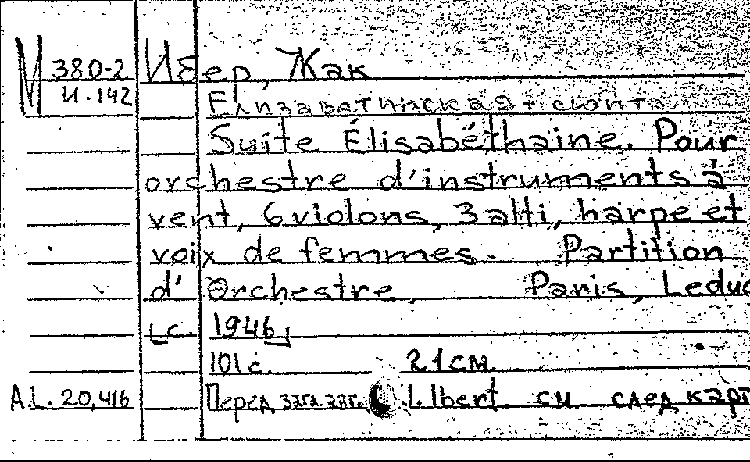 М 380-2 Ибер, Жак
И-142 Елизаветинская сюита
Suite Élisabéthaine. Pour
orchestre d'instruments à
vent, 6 violons, 3 alti, harpe et
voix de femmes. Partition
d'Orchestre. Paris, Leduc
[c. 1946]
101 с. 21 см.
A.L. 20,416 Перед загл. авт. J. Ibert см след карт